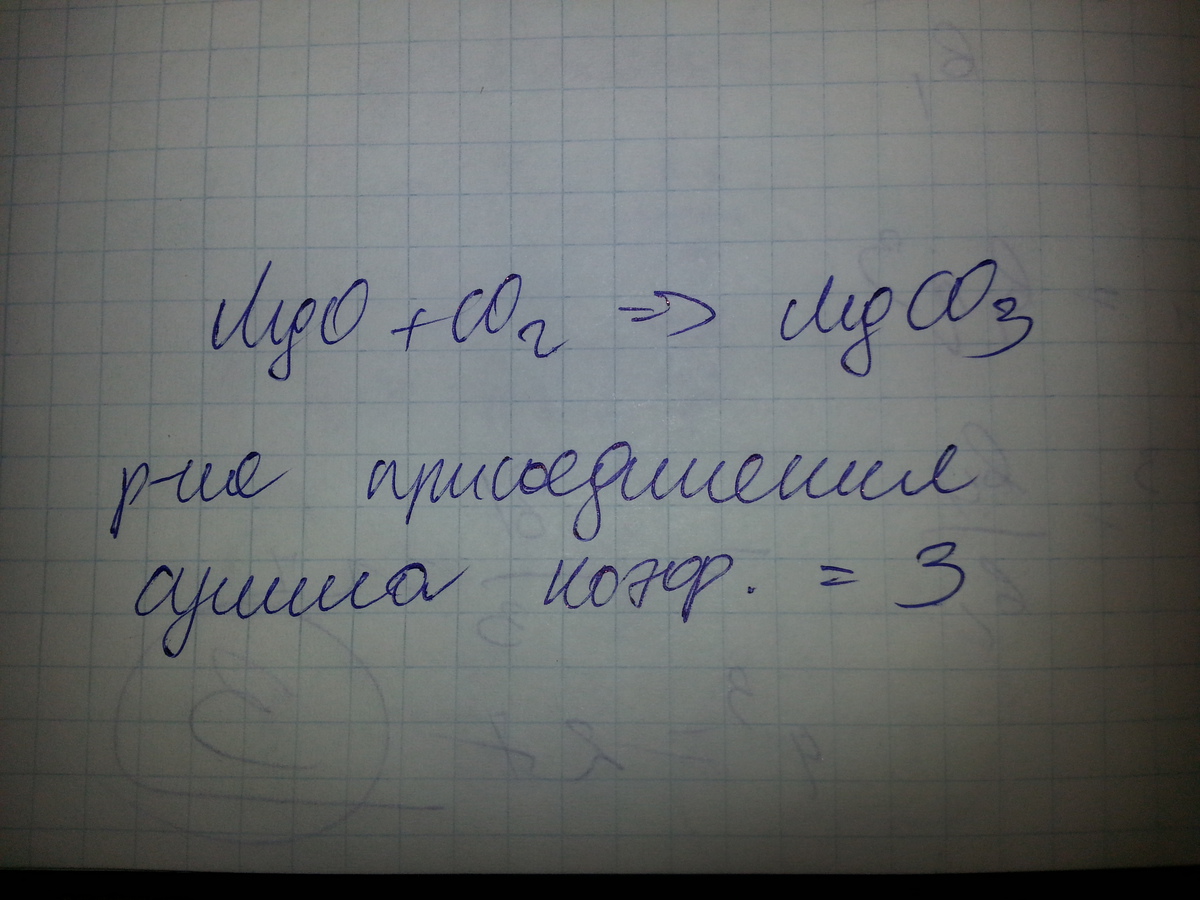 MgO + CO2 => MgCO3
р-ия присоединения
сумма коэф. = 3